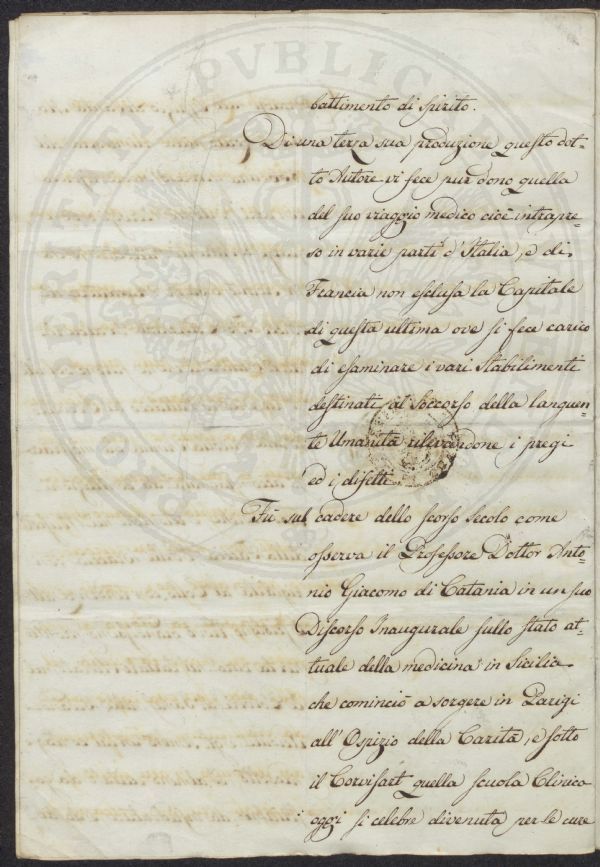 battimento di Spirito.
Di una terza sua produzione questo dot-
to Autore vi fece pur dono quella
del suo viaggio medico cioè intrapre-
so in varie parti d'Italia, e di
Francia non esclusa la Capitale
di questa ultima ove si fece carico
di esaminare i vari Stabilimenti
destinati al Soccorso della languen-
te Umanità rilevandone i pregi
ed i difetti.
Fù sul cadere dello scorso secolo come
osserva il Professore Dottor Anto-
nio Giacomo di Catania in un suo
Discorso Inaugurale sullo stato at-
tuale della medicina in Sicilia
che cominciò a sorgere in Parigi
all'Ospizio della Carità, e sotto
il Corvisart quella scuola Clinica
oggi si celebre divenuta per le cure